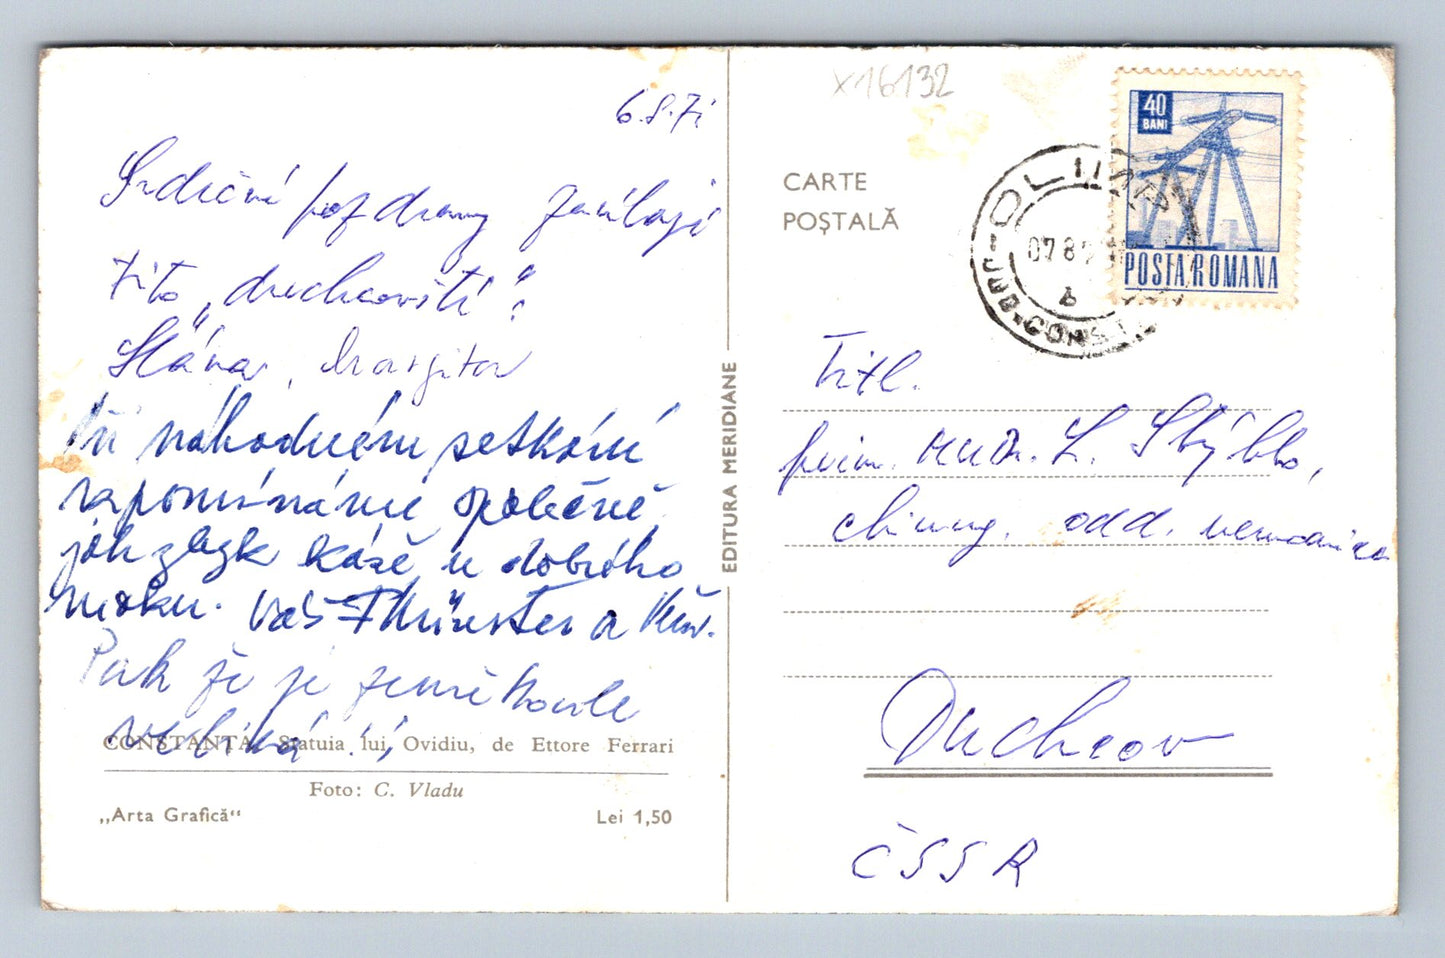 6.8.71
Srdečné pozdravy zasílají
tito „duchcovští“:
Sláva, Margita
Při náhodném setkání
zapomínáme společně
jak na
u dobrého
moku. Váš a
Pak že je zeměkoule
veliká!
CONSTANŢA. Statuia lui Ovidiu, de Ettore Ferrari
Foto: C. Vladu
„Arta Grafică“ Lei 1,50
EDITURA MERIDIANE
X16132
CARTE
POȘTALĂ
40
BANI
POSTA ROMANA
OLIMP
JUD. CONST
078
Titl.
prim. MUDr. L. Stýblo,
chirurg. odd. nemocnice
Duchcov
ČSSR